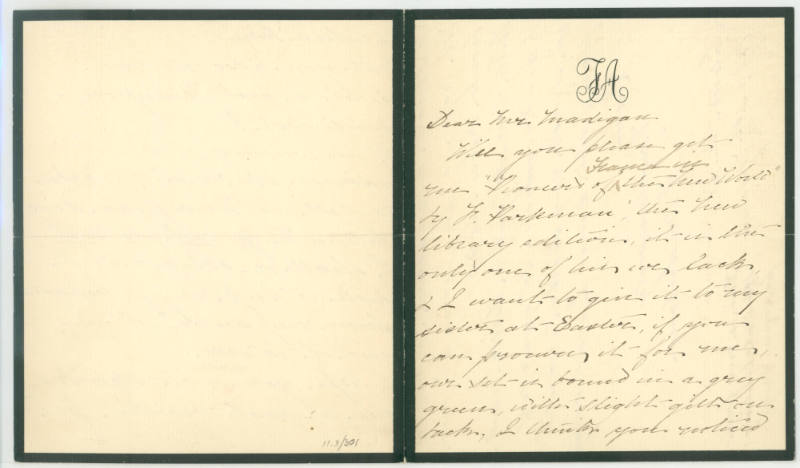 JA
Dear Mr Madigan
Will you please get
France in
me "Pioneers of the New World"
by F. Parkman, the new
library edition, it is the
only one of his we lack,
& I want to give it to my
sister at Easter, if you
can procure it for me,
our set is bound in a grey
green, with slight gilt on
back, I think you noticed
11.3/301